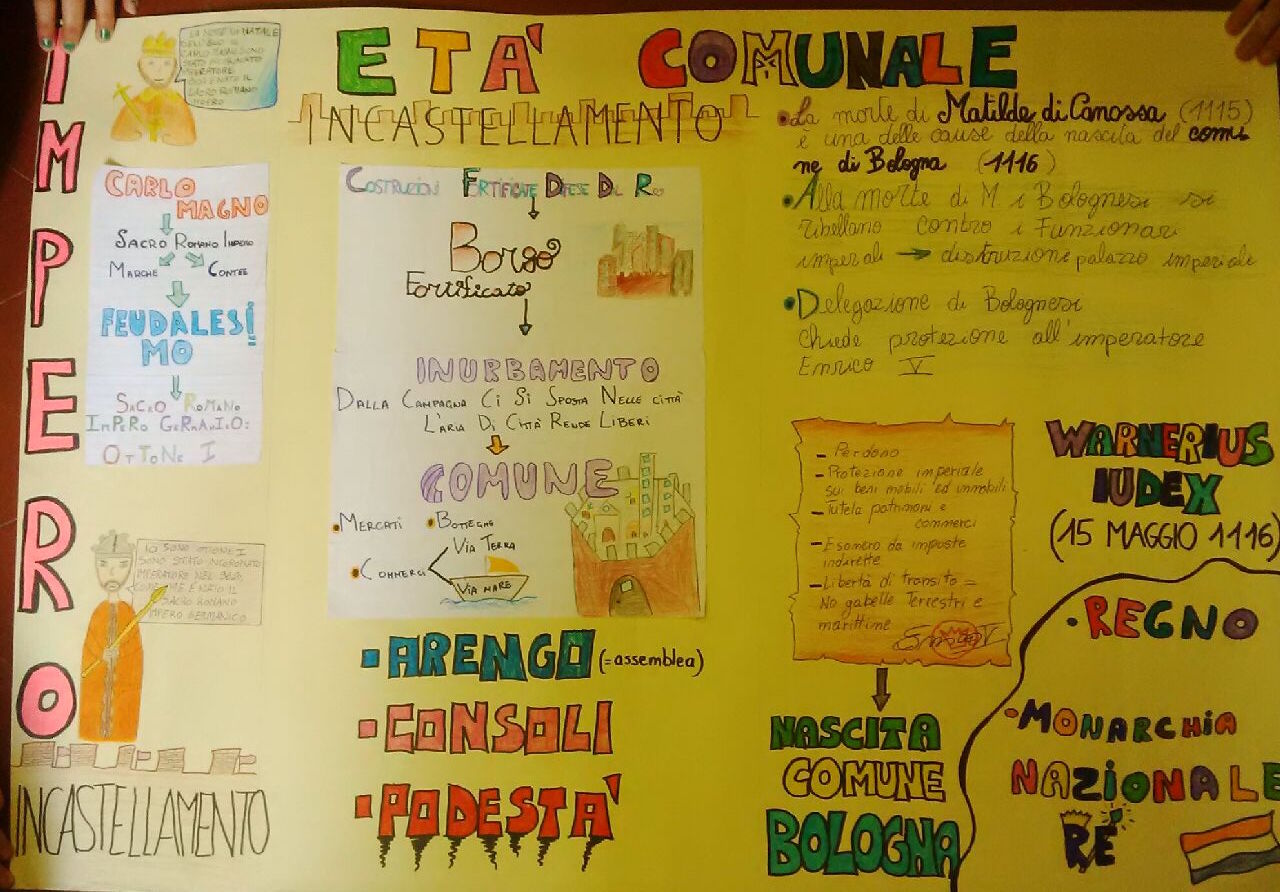 IMPERO
LA NOTTE DI NATALE
DELL'800 IO
CARLO MAGNO SONO
STATO INCORONATO
IMPERATORE
SACRO ROMANO
IMPERO
CARLO
MAGNO
SACRO ROMANO IMPERO
MARCHE CONTEE
FEUDALESI
MO
SACRO ROMANO
IMPERO GERMANICO:
OTTONE I
IO SONO OTTONE I
SONO STATO INCORONATO
IMPERATORE NEL
SACRO ROMANO
IMPERO GERMANICO
INCASTELLAMENTO
ETA' COMUNALE
INCASTELLAMENTO
COSTRUZIONI FORTIFICATE DIFESE DAL RE
Borgo
Fortificato
INURBAMENTO
DALLA CAMPAGNA CI SI SPOSTA NELLE CITTÀ
L'ARIA DI CITTÀ RENDE LIBERI
COMUNE
•MERCATI •BOTTEGHE
•COMMERCI
VIA TERRA
VIA MARE
ARENGO (=assemblea)
CONSOLI
PODESTA'
•La morte di Matilde di Canossa (1115)
è una delle cause della nascita del comu
ne di Bologna (1116)
•Alla morte di M. i Bolognesi si
ribellano contro i Funzionari
imperiali → distruzione palazzo imperiale
•Delegazione di Bolognesi
chiede protezione all'imperatore
Enrico V
– Perdono
– Protezione imperiale
sui beni mobili ed immobili
– Tutela patrimoni e
commerci
– Esonero da imposte
indirette
– Libertà di transito =
No gabelle Terrestri e
marittime
Enrico V
NASCITA
COMUNE
BOLOGNA
WARNERIUS
IUDEX
(15 MAGGIO 1116)
•REGNO
•MONARCHIA
NAZIONALE
RE